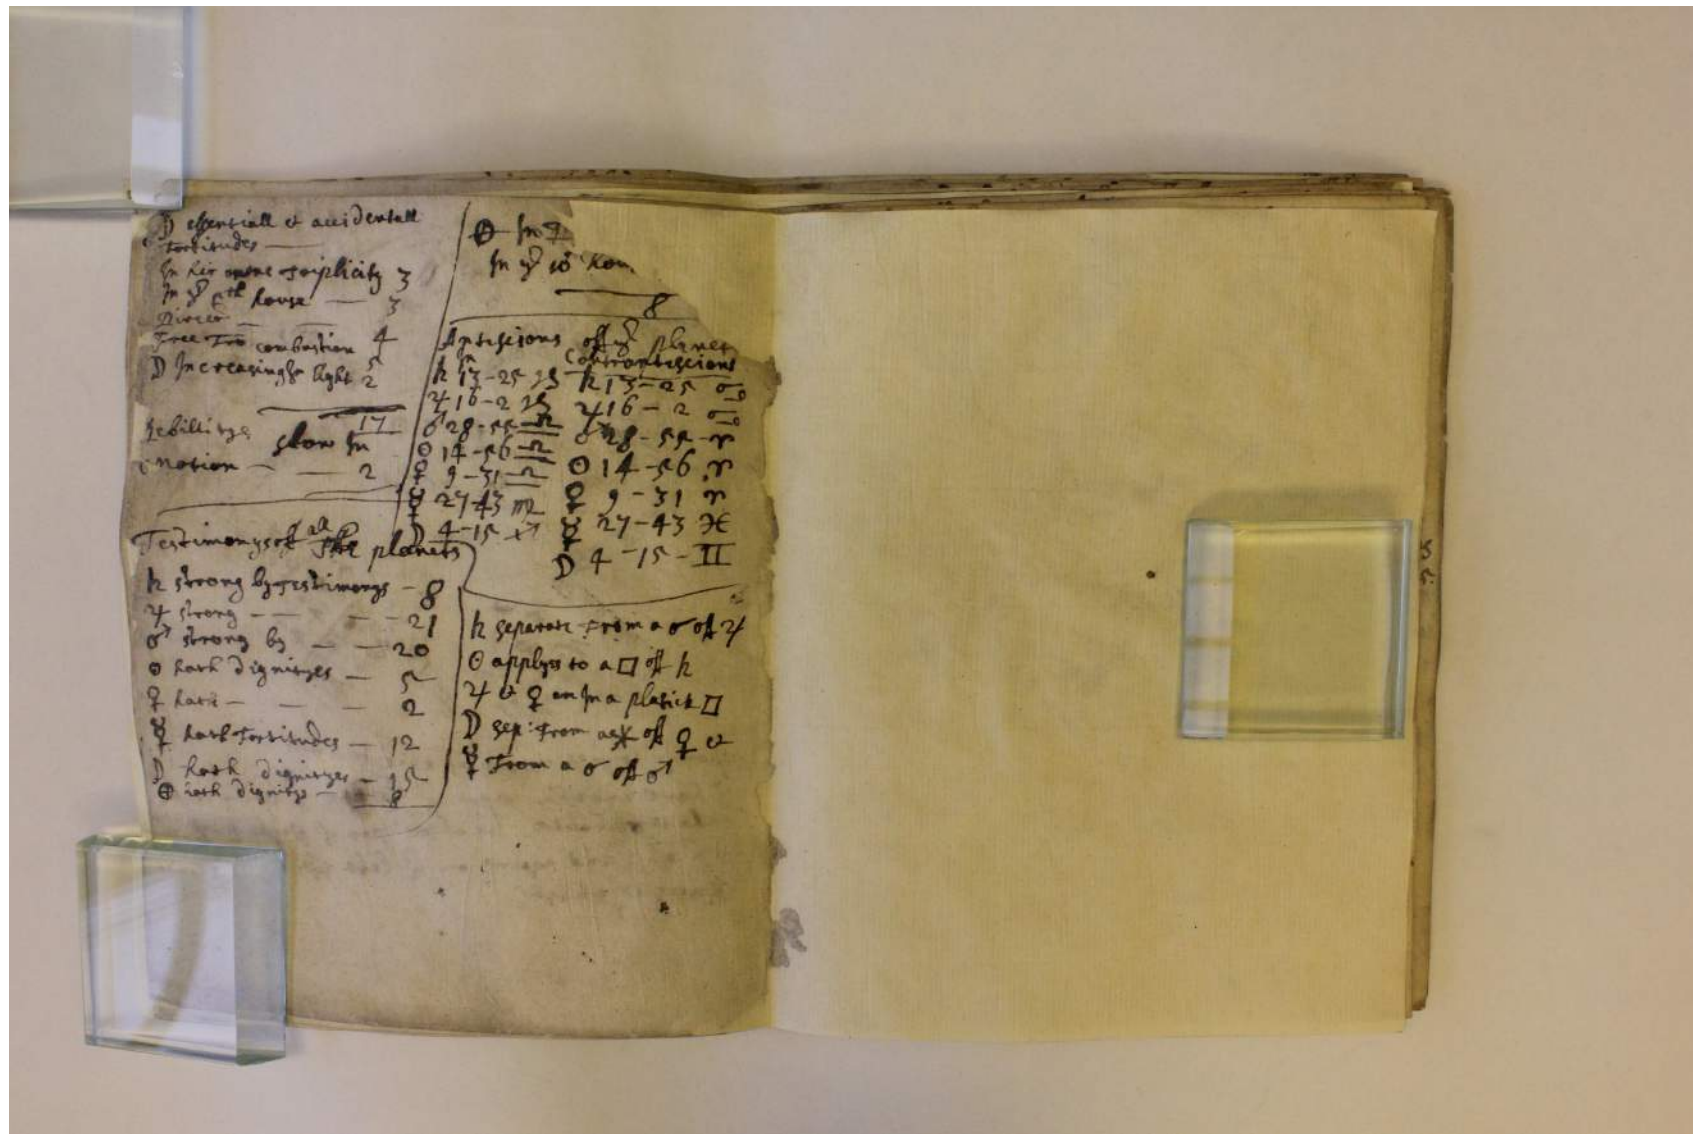 ☽ essentiall et accidentall
fortitudes —
In her owne triplicity 3
In yᵉ 5th house — 3
Direct — — 4
Free fro combustion 5
☽ Increasing In light 2
17
Debilityes slow In
Motion — — 2
Testimonys of all the planets
♄ strong by testimonys — 8
♃ strong — — — 21
♂ strong by — — 20
☉ hath dignityes — 5
♀ hath — — — 2
☿ hath fortitudes — 12
☽ hath dignityes — 15
⊕ hath dignitys — 8
⊕ In
In yᵉ 10 hou
8
Antiscions off yᵉ planet
Contrantiscions
♄ 13-25 ♑ ♄ 13-25 ♋
♃ 16-2 ♑ ♃ 16-2 ♋
♂ 28-55 ♎ ♂ 28-55 ♈
☉ 14-56 ♎ ☉ 14-56 ♈
♀ 9-31 ♎ ♀ 9-31 ♈
☿ 27-43 ♍ ☿ 27-43 ♓
☽ 4-15 ♐ ☽ 4-15-♊
♄ separate from a ☌ off ♃
☉ applys to a □ off ♄
♃ et ♀ are In a platick □
☽ sep: from a ⚹ off ♀ et
☿ from a ☌ off ♂